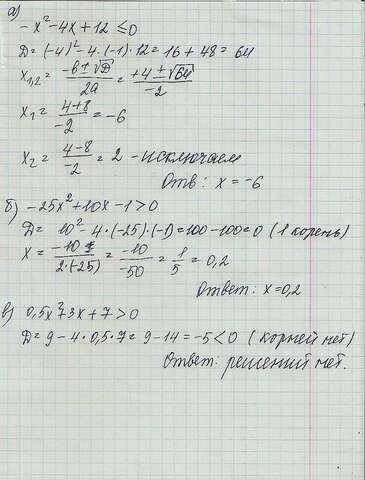 а)
-x² - 4x + 12 ≤ 0
D = (-4)² - 4·(-1)·12 = 16 + 48 = 64
x₁,₂ = (-в ± √D)/2a = (+4 ± √64)/-2
x₁ = (4+8)/-2 = -6
x₂ = (4-8)/-2 = 2 - исключаем
Отв: x = -6
б) -25x² + 10x - 1 > 0
D = 10² - 4·(-25)·(-1) = 100 - 100 = 0 (1 корень)
x = -10/2·(-25) = -10/-50 = 1/5 = 0,2
Ответ: x = 0,2
в) 0,5x² 3x + 7 > 0
D = 9 - 4·0,5·7 = 9 - 14 = -5 < 0 (корней нет)
Ответ: решений нет.